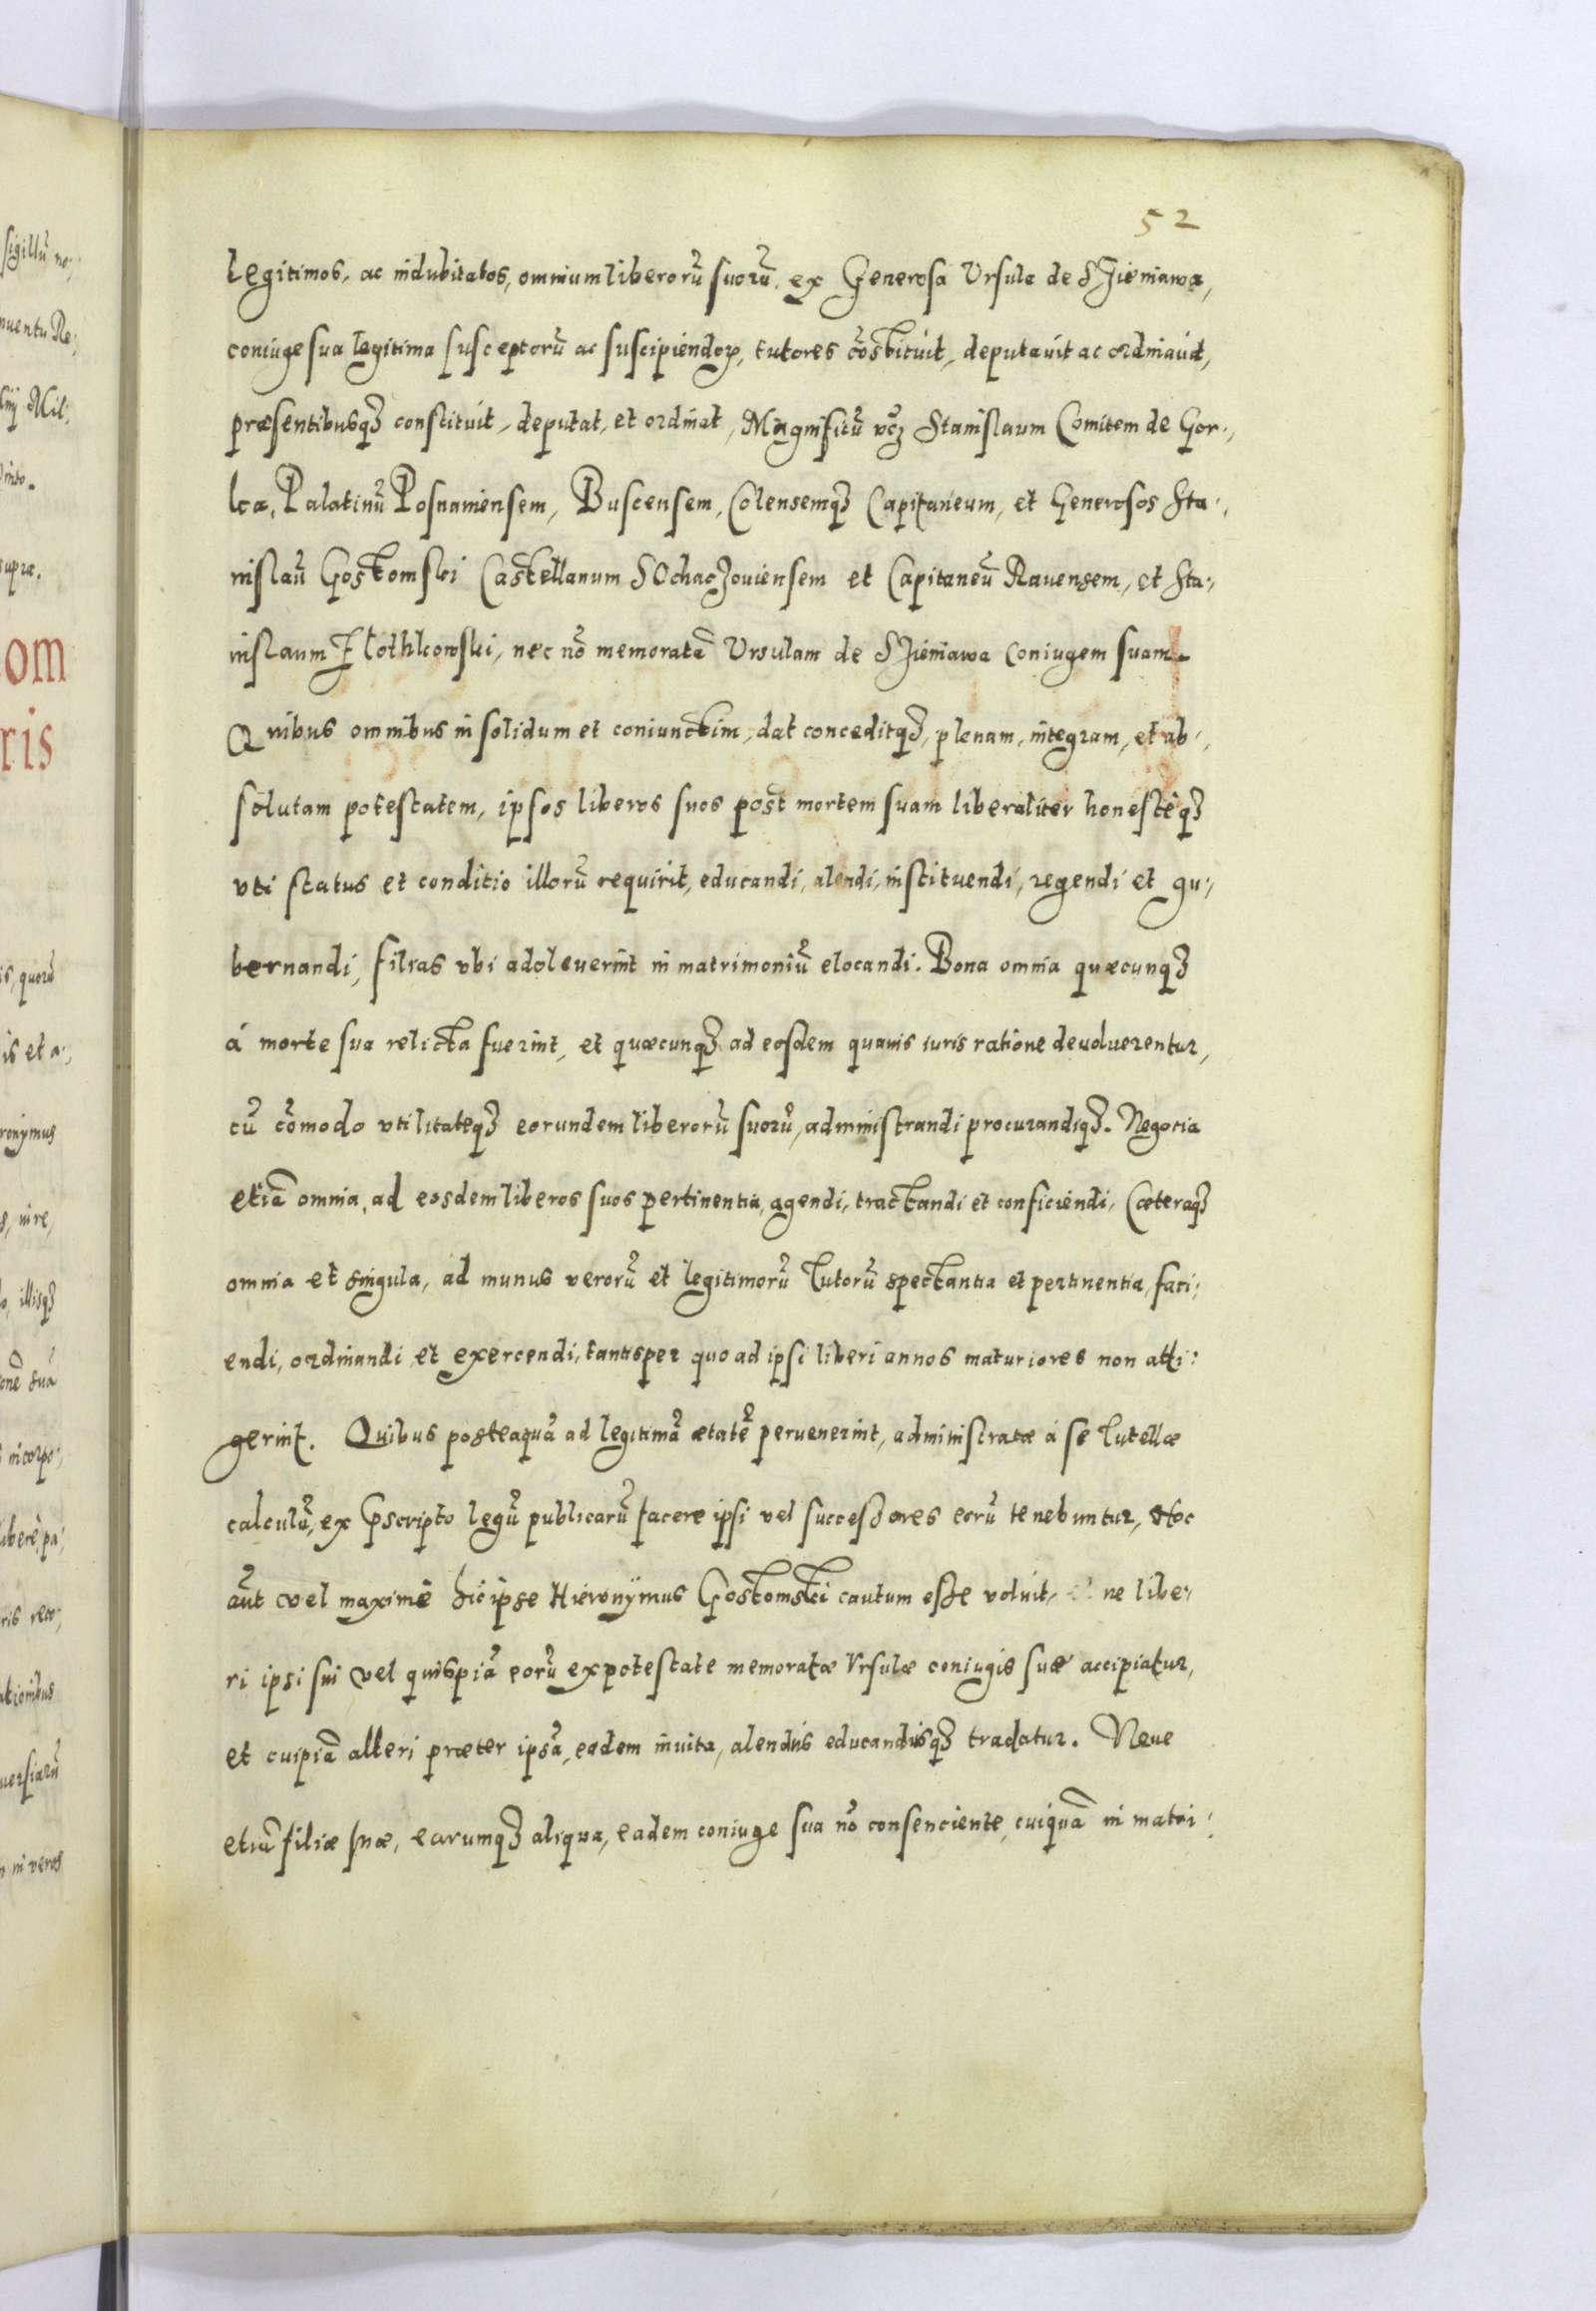 52
legitimos, ac indubitatos, omnium liberorũ suorũ, ex Generosa Vrsula de SJieniawa,
coniuge sua legitima susceptorũ ac suscipiendoꝝ, tutores cõstituit, deputauit ac ordinauit,
præsentibusqꝫ constituit, deputat, et ordinat, Magnificũ vꝫ Stanislaum Comitem de Gor-,
ka, Palatinũ Posnaniensem, Buscensem, Colensemqꝫ Capitaneum, et Generosos Sta-,
nislaũ Gostomski Castellanum SOchacJouiensem et Capitaneũ Rauensem, et Sta-,
nislaum Kothkowski, nec nõ memoratã Vrsulam de SJieniawa Coniugem suam.
Quibus omnibus in solidum et coniunctim, dat conceditqꝫ, plenam, integram, et ab-,
solutam potestatem, ipsos liberos suos post mortem suam liberaliter honestèqꝫ
vti status et conditio illorũ requirit, educandi, alendi, instituendi, regendi et gu-,
bernandi, filias vbi adoleuerint in matrimoniũ elocandi. Bona omnia quæcunqꝫ
á morte sua relicta fuerint, et quæcunqꝫ ad eosdem quauis iuris ratione deuoluerentur,
cũ cõmodo vtilitateqꝫ eorundem liberorũ suorũ, administrandi procurandiqꝫ. Negotia
etiã omnia, ad eosdem liberos suos pertinentia, agendi, tractandi et conficiendi, Cæteraqꝫ
omnia et singula, ad munus verorũ et legitimorũ Tutorũ spectantia et pertinentia, faci-,
endi, ordinandi et exercendi, tantisper quo ad ipsi liberi annos maturiores non atti:
gerint. Quibus posteaquã ad legitimã ætatẽ peruenerint, administratæ á se Tutellæ
calculũ, ex ꝓscripto legũ publicarũ facere ipsi vel successores eorũ tenebuntur, Hoc
aũt vel maximè hic ipse Hieronÿmus Gostomski cautum esse voluit, ne libe-,
ri ipsi sui vel quispiã eorũ ex potestate memoratæ Vrsulæ coniugis suæ accipiatur,
et cuipiã alteri præter ipsã, eadem inuita, alendus educandusqꝫ tradatur. Neue
etiã filiæ suæ, earumqꝫ aliqua, eadem coniuge sua nõ consenciente, cuiquã in matri-,